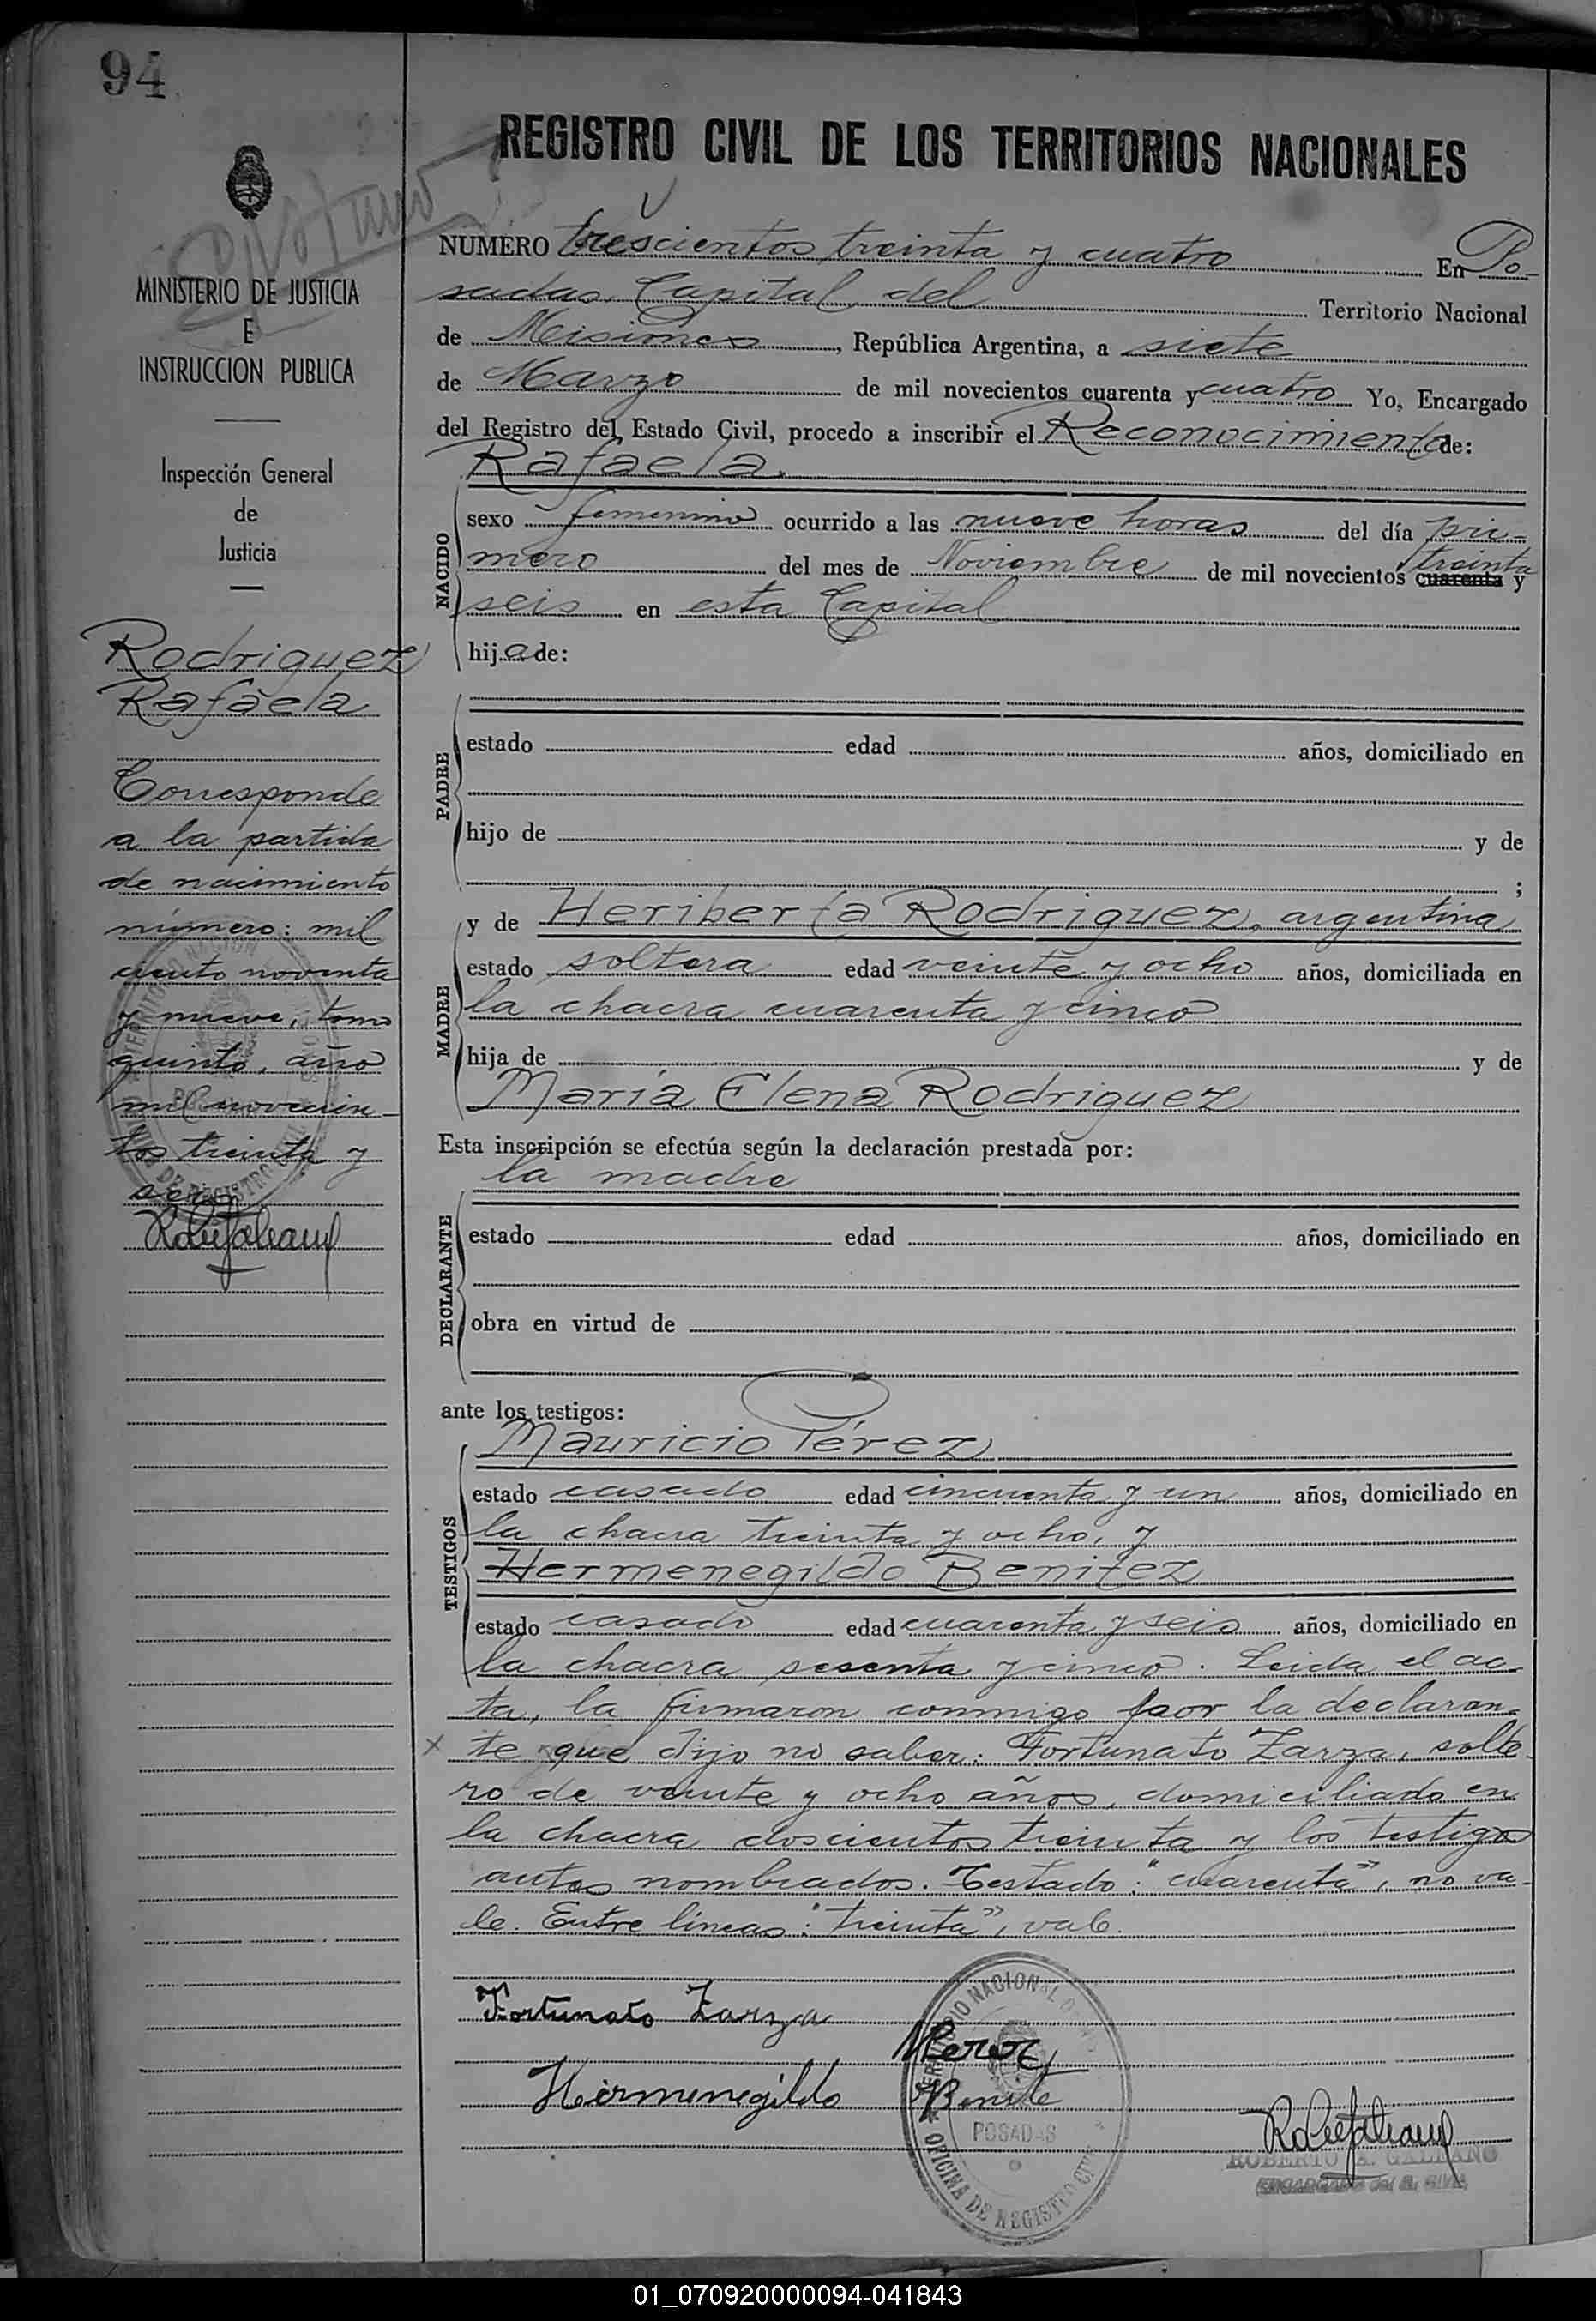 94
MINISTERIO DE JUSTICIA
E
INSTRUCCION PUBLICA
Inspección General
de
Justicia
Rodriguez
Rafaela
Corresponde
a la partida
de nacimiento
número: mil
ciento noventa
y nueve, tomo
quinto, año
mil novecien-
tos treinta y
seis
REGISTRO CIVIL DE LOS TERRITORIOS NACIONALES
NUMERO trescientos treinta y cuatro En Po-
sadas, Capital del Territorio Nacional
de Misiones, República Argentina, a siete
de Marzo de mil novecientos cuarenta y cuatro Yo, Encargado
del Registro del Estado Civil, procedo a inscribir el Reconocimiento de:
Rafaela.
NACIDO
sexo femenino ocurrido a las nueve horas del día pri-
treinta
mero del mes de Noviembre de mil novecientos cuarenta y
seis en esta Capital
hija de:
PADRE
estado edad años, domiciliado en
hijo de y de
;
MADRE
y de Heriberta Rodriguez, argentina
estado soltera edad veinte y ocho años, domiciliada en
la chacra cuarenta y cinco
hija de y de
María Elena Rodriguez
Esta inscripción se efectúa según la declaración prestada por:
la madre
DECLARANTE
estado edad años, domiciliado en
obra en virtud de
ante los testigos:
TESTIGOS
Mauricio Pérez
estado casado edad cincuenta y un años, domiciliado en
la chacra treinta y ocho, y
Hermenegildo Benitez
estado casado edad cuarenta y seis años, domiciliado en
la chacra sesenta y cinco. Leida el ac-
ta, la firmaron conmigo por la declaran-
x te que dijo no saber: Fortunato Zarza, solte-
ro de veinte y ocho años, domiciliado en
la chacra doscientos treinta y los testigos
antes nombrados. Testado: "cuarenta", no va-
le. Entre líneas: "treinta", vale.
Fortunato Zarza
Perez
Hermenegildo Benite
POSADAS
OFICINA DE REGISTRO CIVIL
ROBERTO A. GALEANO
ENCARGADO del R. CIVIL
01_070920000094-041843